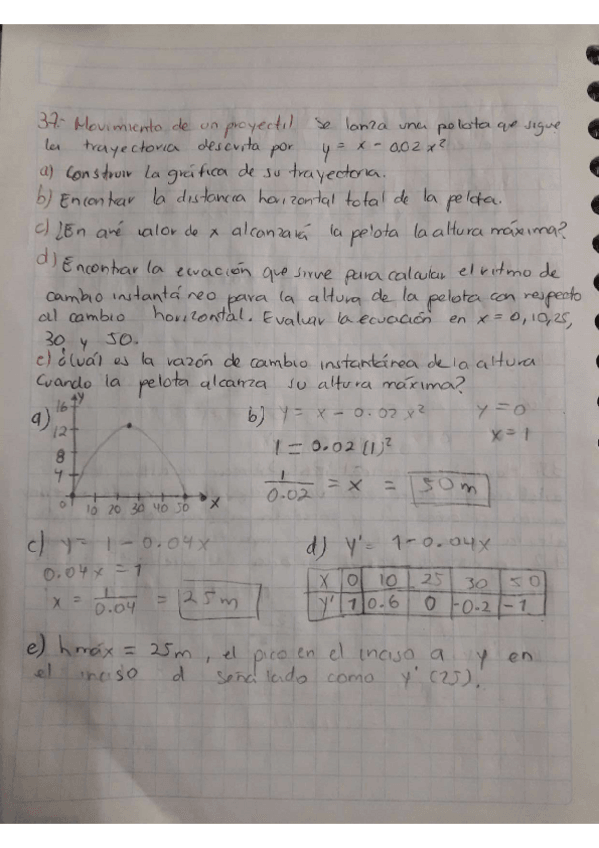 37.- Movimiento de un proyectil se lanza una pelota que sigue
la trayectoria descrita por y = x - 0.02 x²
a) Construir la gráfica de su trayectoria.
b) Encontrar la distancia horizontal total de la pelota.
c) ¿En qué valor de x alcanzará la pelota la altura máxima?
d) Encontrar la ecuación que sirve para calcular el ritmo de
cambio instantáneo para la altura de la pelota con respecto
al cambio horizontal. Evaluar la ecuación en x = 0, 10, 25,
30 y 50.
e) ¿Cuál es la razón de cambio instantánea de la altura
cuando la pelota alcanza su altura máxima?
a) y
16
12
8
4
0 10 20 30 40 50 x
b) y = x - 0.02 x² y = 0
x = 1
1 = 0.02 (1)²
1/0.02 = x = 50 m
c) y = 1 - 0.04x
0.04x = 1
x = 1/0.04 = 25 m
d) y' = 1 - 0.04x
x 0 10 25 30 50
y' 1 0.6 0 -0.2 -1
e) hmáx = 25m, el pico en el inciso a y en
el inciso d señalado como y' (25).